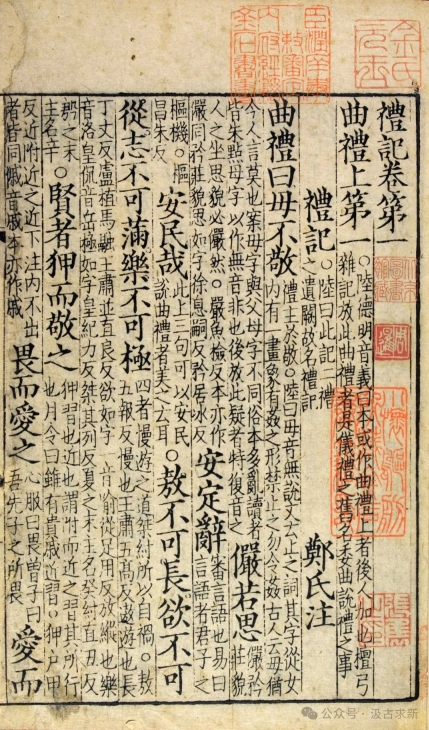 禮記卷第一
曲禮上第一
。陸德明音義曰本或作曲禮上者後人加也檀弓
雜記放此曲禮者是儀禮之舊名委曲說禮之事
禮記
。陸曰此記二禮
之遺闕故名禮記
鄭氏注
曲禮曰毋不敬
禮主於敬。陸曰毋音無說文云止之詞其字從女
內有一畫象有姦之形禁止之勿令姦古人云毋猶
今人言莫也案毋字與父母字不同俗本多亂讀者
皆朱點母字以作無音非也後放此疑者特復音之
儼若思
儼矜
莊貌
人之坐思貌必儼然。儼魚檢反本亦作
嚴同矜莊貌思如字徐息嗣反矜居冰反
安定辭
審言語也易曰
言語者君子之
樞機。樞
昌朱反
安民哉
此上三句可以安民
說曲禮者美之云耳
。敖不可長欲不可
從志不可滿樂不可極
四者慢遊之道桀紂所以自禍。敖
五報反慢也王肅五高反遨遊也長
丁丈反盧植馬融王肅並直良反欲如字一音喻從足用反放縱也樂
音洛皇侃音岳極如字皇紀力反桀其列反夏之末主名癸紂直丑反
殷之末
主名辛
。賢者狎而敬之
狎習也近也謂附而近之習其所行
也月令曰雖有貴戚近習。狎戶甲
反近附近之近下注內不出
者皆同戚音戚本亦作戚
畏而愛之
心服曰畏曾子曰
吾先子之所畏
愛而
公众号 · 汲古求新